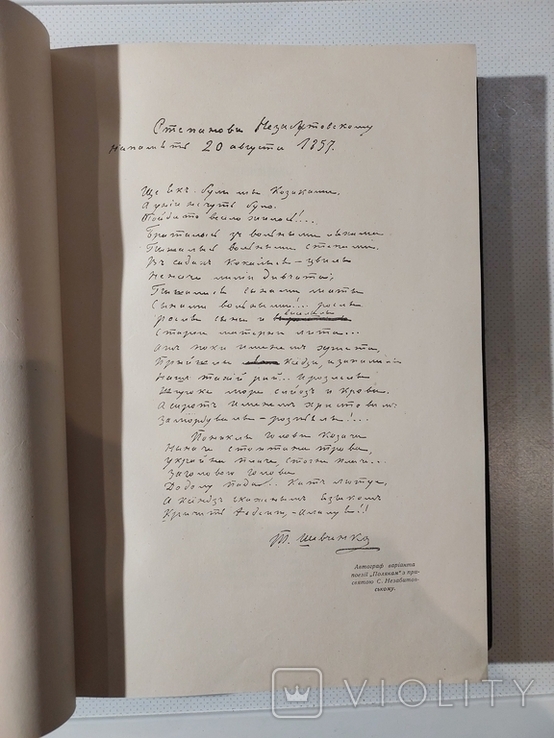 Степанови Незабитовскому
напамьть 20 августа 1857.
Ще якъ були ми козаками,
А уніи нечуть було.
Отойдито весело жилось!...
Браталися зъ вольными ляхами
Пишались вольными степами.
Въ садахъ кохались – цвили
Неначе лилии дивчата;
Пишалися сынами маты
Сынами вольными!... росли
росли сыны и веселили
Старіи матерни лита...
Ажъ поки именемъ христа,
Прийшли ксёндзи, изапалили
Нашъ тихій рай.. и розлили
Шыроке море слёзъ и крови.
А сиротъ именемъ христовымъ
Замордували – розпяли!...
Поникли головы козачи
Наначе стоптана трава,
Украйна плаче, стогне плаче...
За головою голова
Додолу пада.. Катъ лютуе,
А ксёндзъ скаженымъ языкомъ
Кричить Те deum, – алилуя!!
Т. Шевченко
Автограф варіянта
поезії „Полякам" з при-
святою С. Незабитов-
ському.
VIOLITY